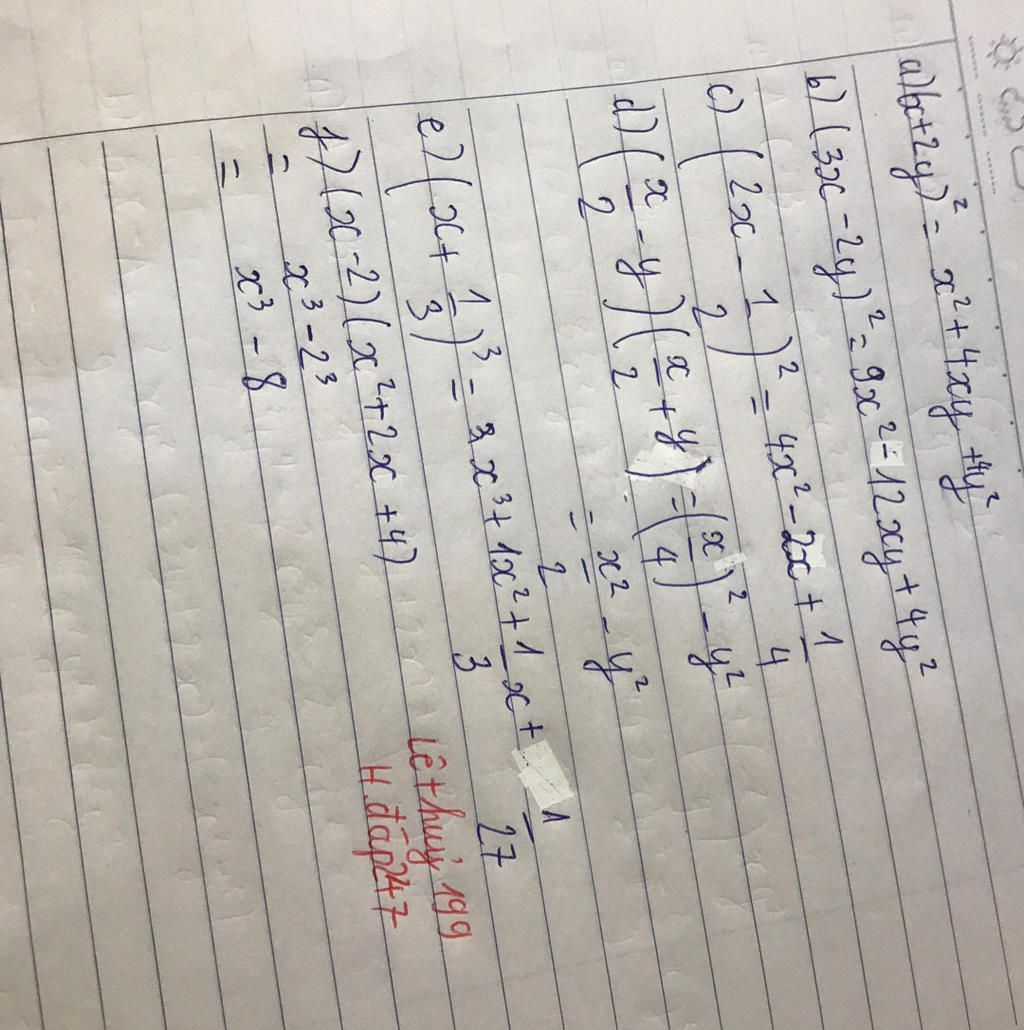 a) (x+2y)² = x² + 4xy + 4y²
b) (3x - 2y)² = 9x² - 12xy + 4y²
c) (2x - 1/2)² = 4x² - 2x + 1/4
d) (x/2 - y)(x/2 + y) = (x/4)² - y²
= x²/2 - y²
e) (x + 1/3)³ = x³ + 1x² + 1/3 x + 1/27
f) (x - 2)(x² + 2x + 4)
= x³ - 2³
= x³ - 8
lêthuỷ199
H.đáp247